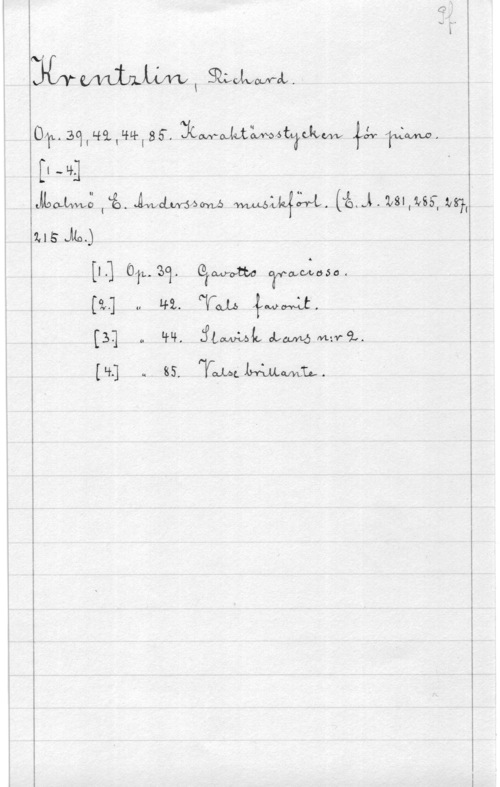 Pf
Krentzlin, Richard.
Op. 39, 42, 44, 85. Karaktärsstycken för piano.
[1-4.]
Malmö, E. Anderssons musikförl. (E. A. 281, 265, 287,
215 Mo.)
[1.] Op. 39. Gavotto gracioso.
[2.] " 42. Vals favorit.
[3.] " 44. Slavisk dans n:r 2.
[4.] " 85. Valse brillante.